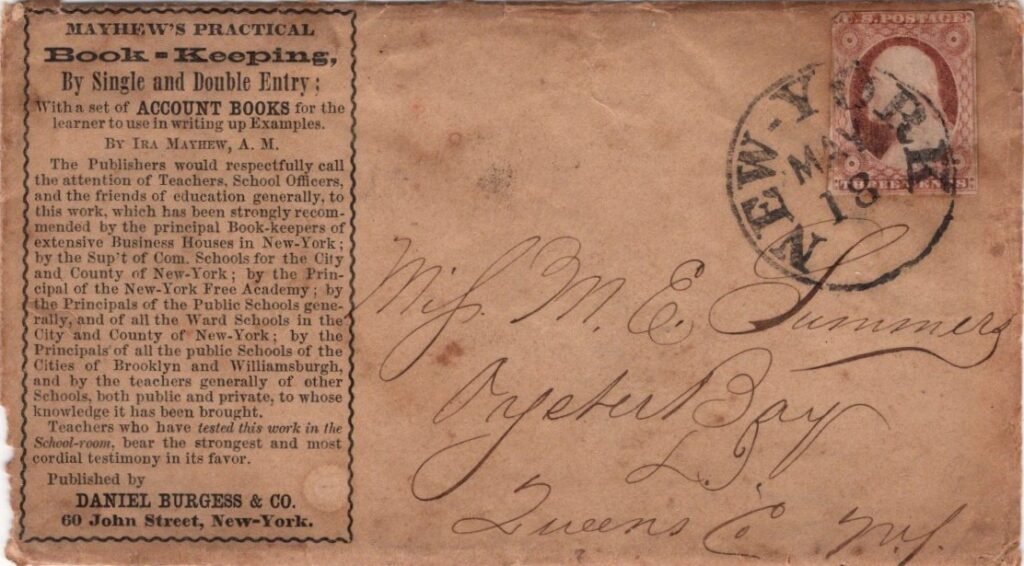 MAYHEW'S PRACTICAL
Book-Keeping,
By Single and Double Entry;
With a set of ACCOUNT BOOKS for the
learner to use in writing up Examples.
BY IRA MAYHEW, A. M.
The Publishers would respectfully call
the attention of Teachers, School Officers,
and the friends of education generally, to
this work, which has been strongly recom-
mended by the principal Book-keepers of
extensive Business Houses in New-York;
by the Sup't of Com. Schools for the City
and County of New-York; by the Prin-
cipal of the New-York Free Academy; by
the Principals of the Public Schools gene-
rally, and of all the Ward Schools in the
City and County of New-York; by the
Principals of all the public Schools of the
Cities of Brooklyn and Williamsburgh,
and by the teachers generally of other
Schools, both public and private, to whose
knowledge it has been brought.
Teachers who have tested this work in the
School-room, bear the strongest and most
cordial testimony in its favor.
Published by
DANIEL BURGESS & CO.
60 John Street, New-York.
U.S. POSTAGE
THREE CENTS
NEW-YORK
MAY
18
Miss. M. E. Summers
Oyster Bay
L. I.
Queens C. N.Y.